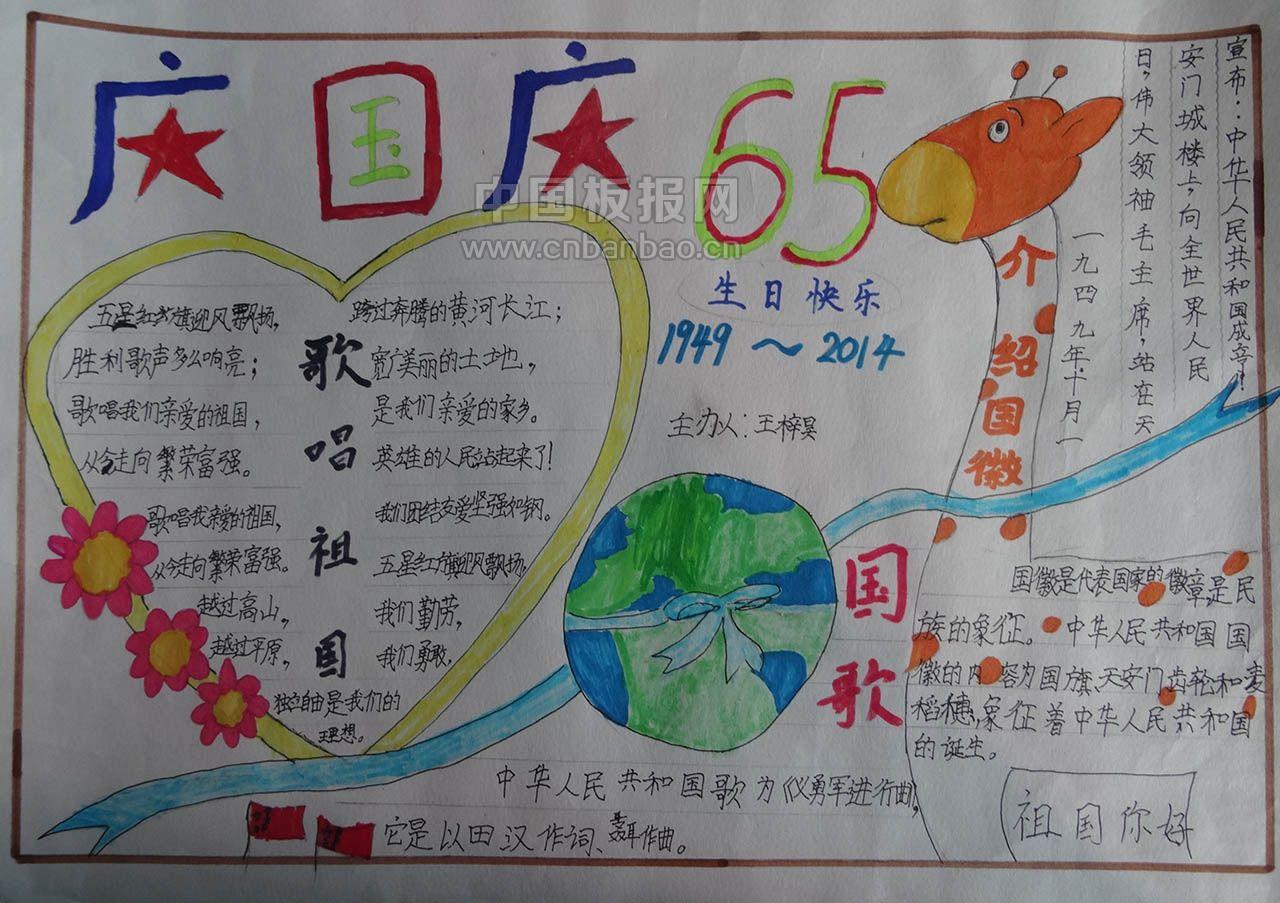 庆国庆
65
生日快乐
1949～2014
主办人：王梓昊
中国板报网
www.cnbanbao.cn
歌唱祖国
五星红旗迎风飘扬，
胜利歌声多么响亮；
歌唱我们亲爱的祖国，
从今走向繁荣富强。
歌唱我亲爱的祖国，
从今走向繁荣富强。
越过高山，
越过平原，
跨过奔腾的黄河长江；
宽广美丽的土地，
是我们亲爱的家乡。
英雄的人民站起来了！
我们团结友爱坚强如钢。
五星红旗迎风飘扬，
我们勤劳，
我们勇敢，
独立自由是我们的
理想。
国歌
中华人民共和国歌为《义勇军进行曲》，
它是以田汉作词、聂耳作曲。
介绍国徽
一九四九年十月一
日，伟大领袖毛主席，站在天
安门城楼上，向全世界人民
宣布：中华人民共和国成立！
国徽是代表国家的徽章，是民
族的象征。中华人民共和国国
徽的内容为国旗、天安门齿轮和麦
稻穗，象征着中华人民共和国
的诞生。
祖国你好